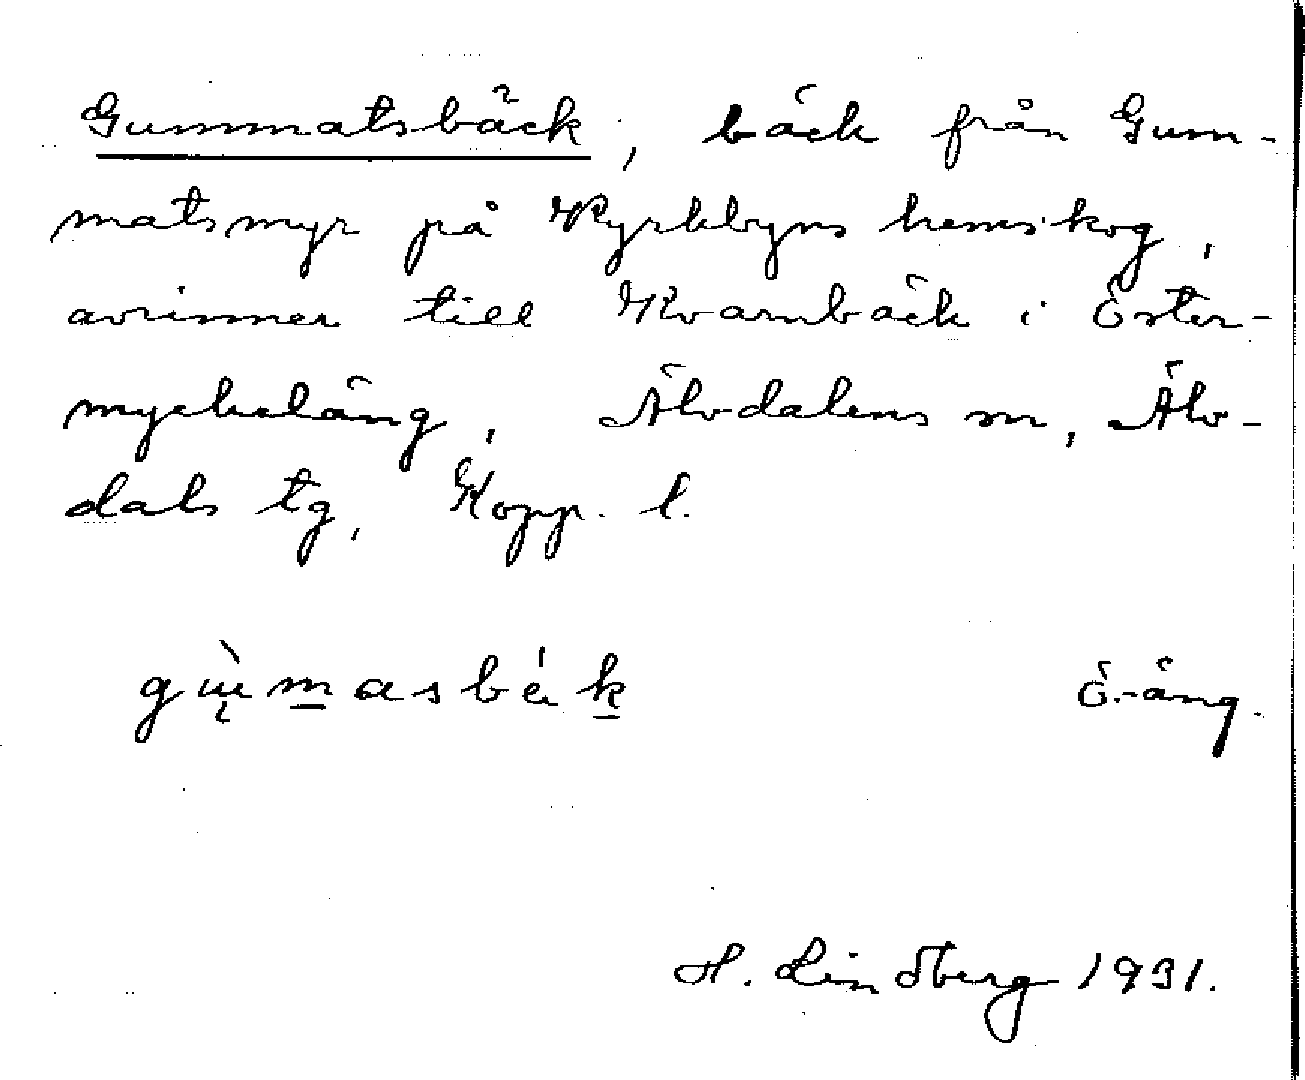 Gummatsbäck, bäck från Gum-
matsmyr på Kyrkbyns hemskog,
avrinner till Kvarnbäck i Öster-
myckeläng, Älvdalens sn, Älv-
dals tg, Kopp. l.
Ö.-äng.
H. Lindberg 1931.